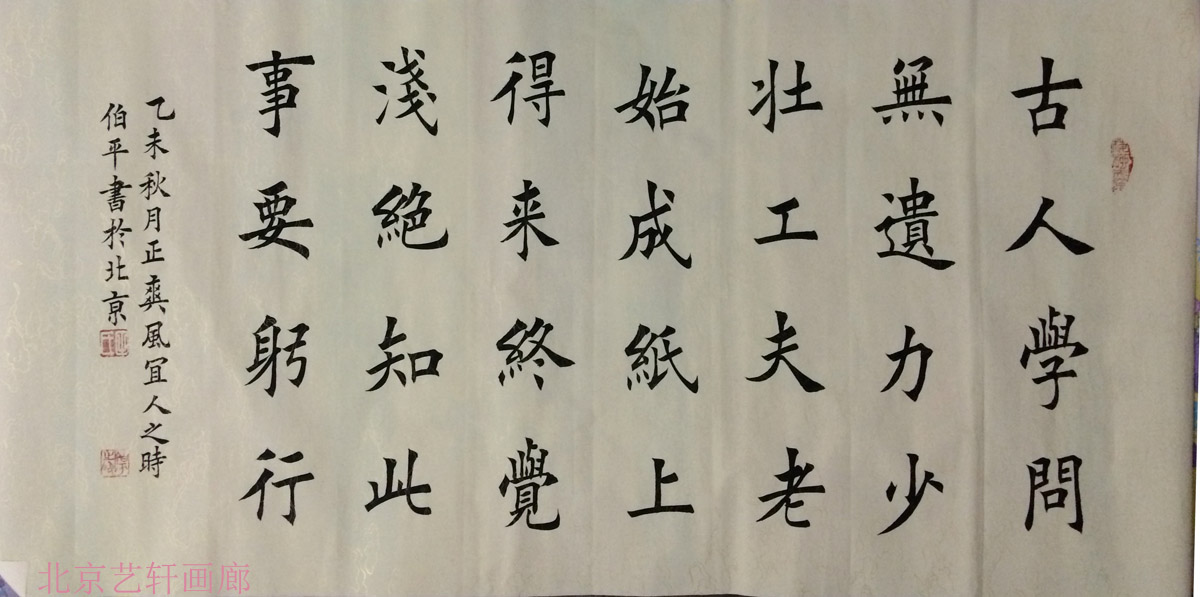 古人學問
無遺力少
壯工夫老
始成紙上
得来終覺
淺絕知此
事要躬行
乙未秋月正爽風宜人之時
伯平書於北京
北京艺轩画廊